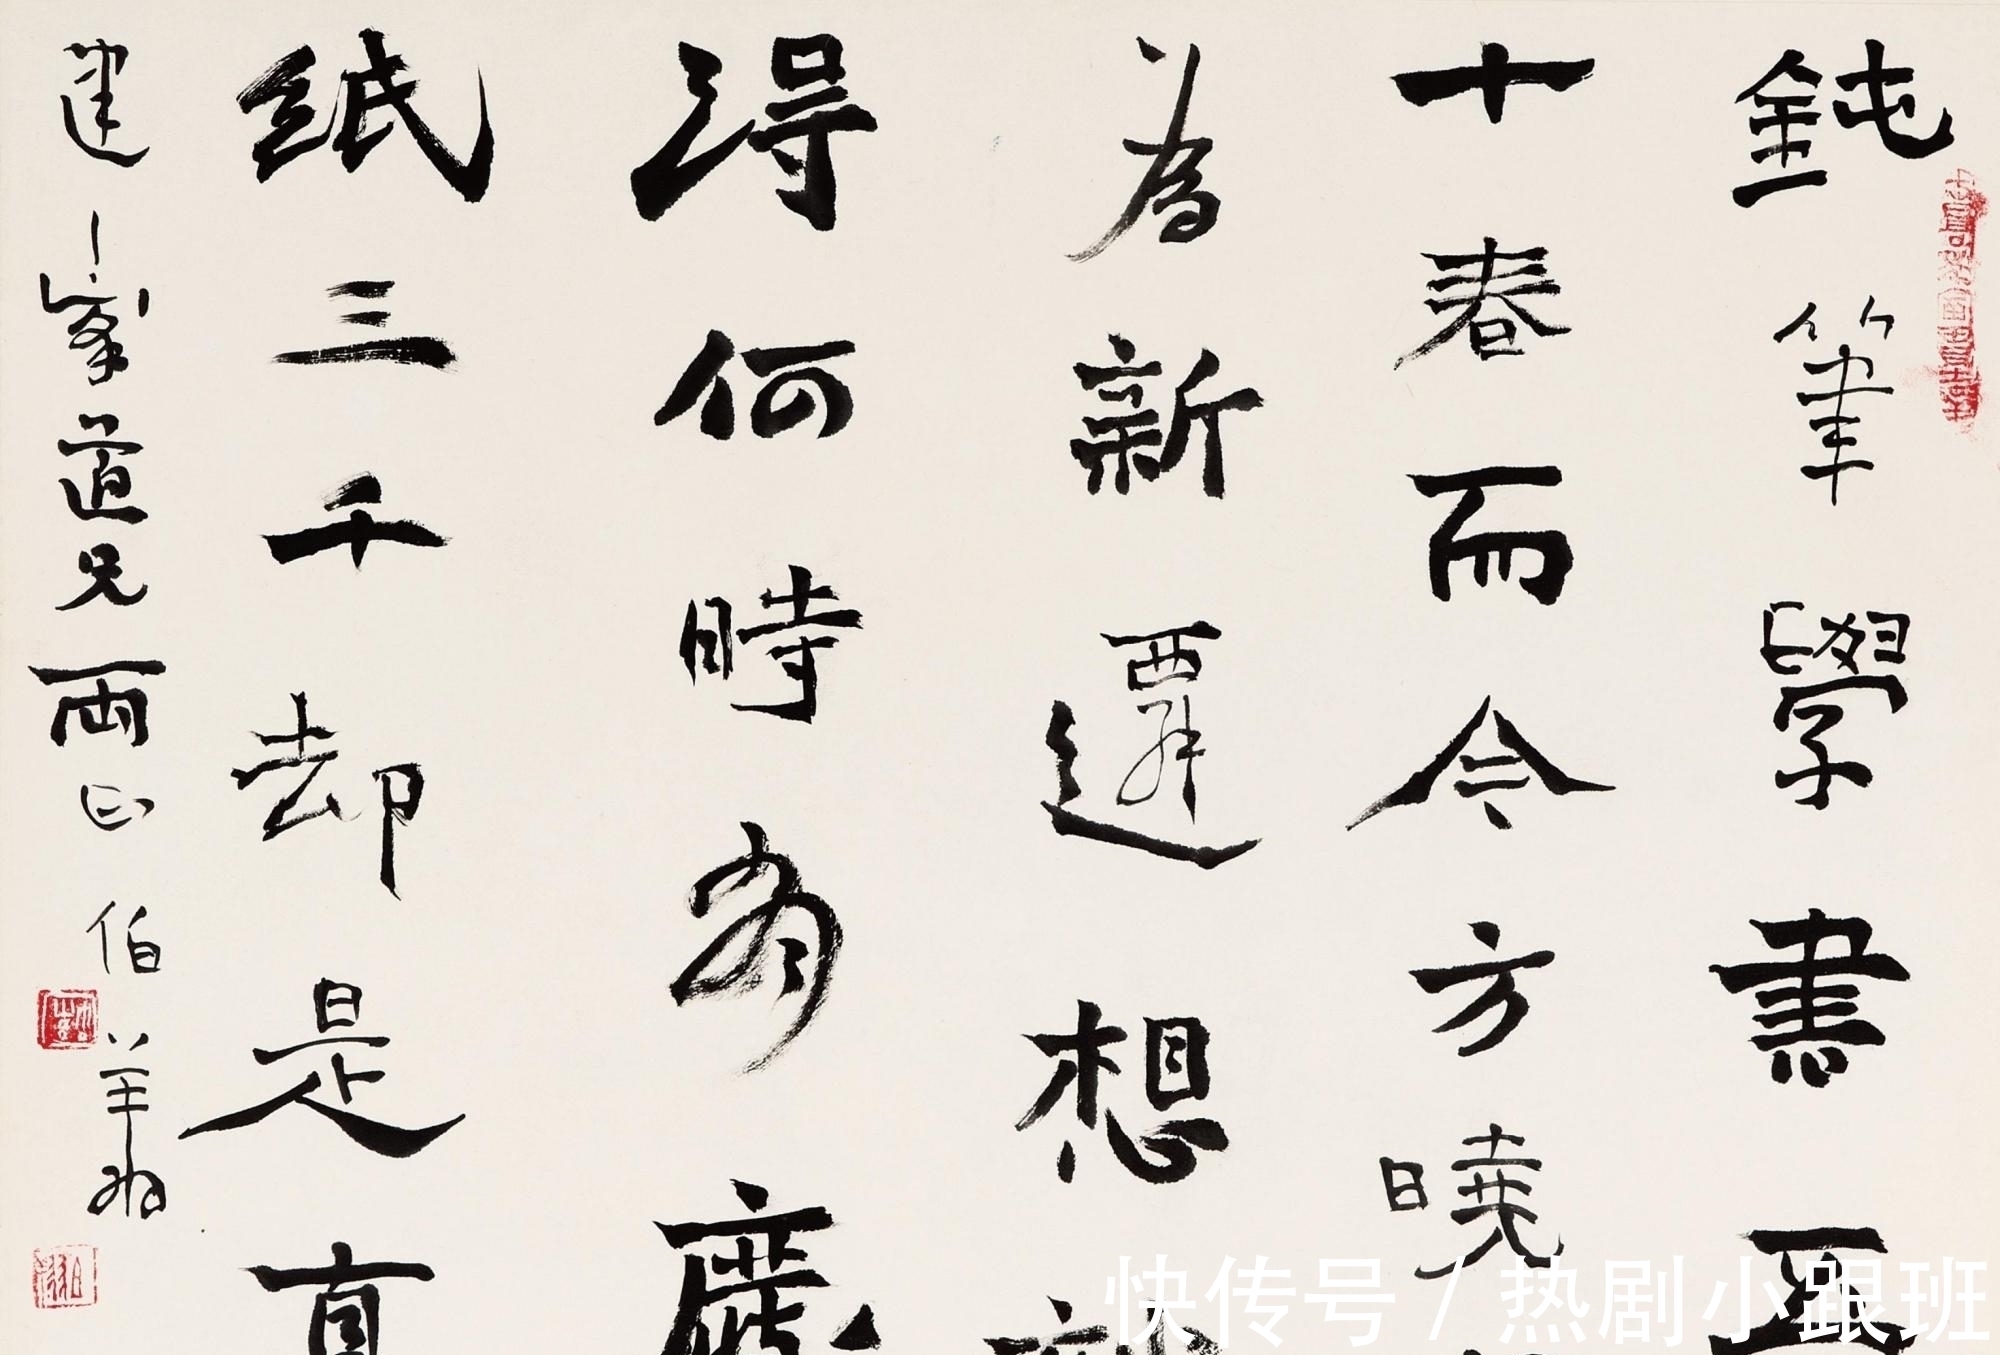 鈍筆學書五
十春而今方曉
為新遷想
得何時為廢
紙三千却是真
建峯道兄兩正
伯羊翔
快传号/热剧小跟班